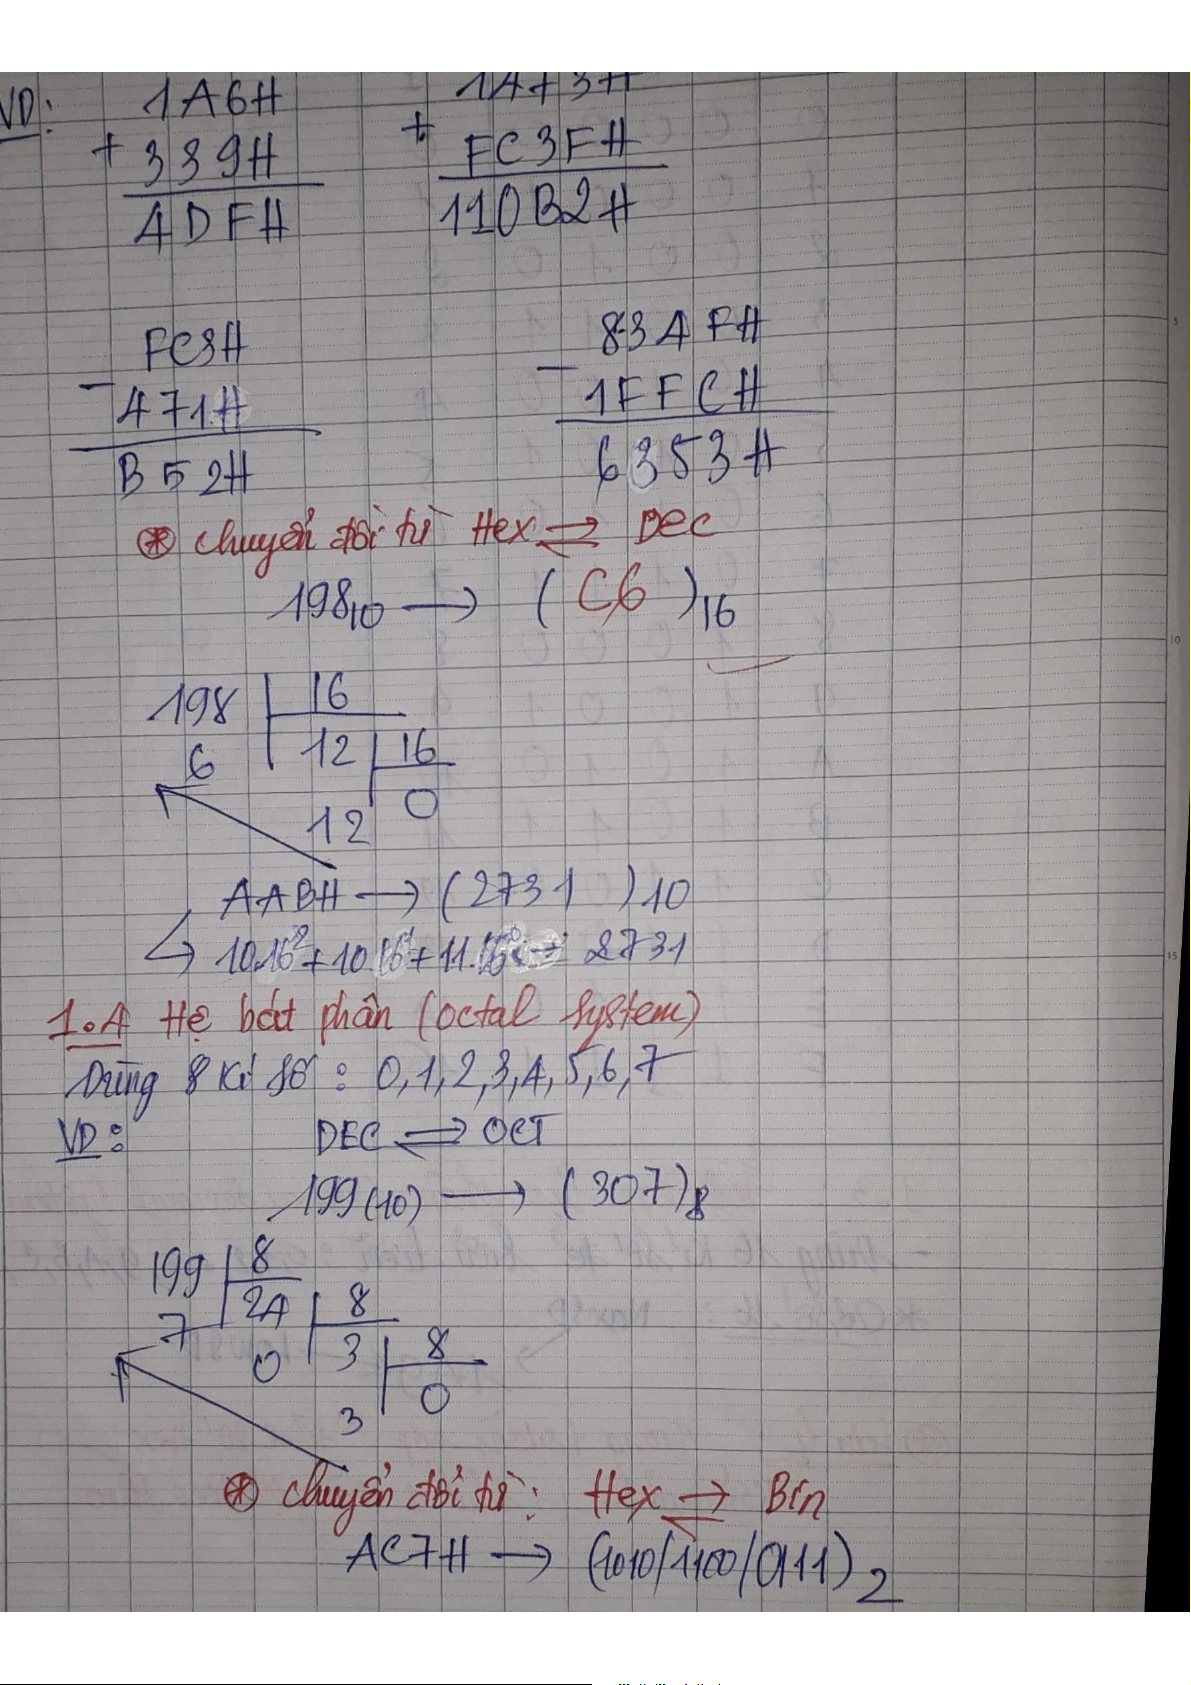 VD: 1A6H 1A73H
+ 339H + FC3FH
4DFH 110B2H
FC3H 83AFH
- 471H - 1FFCH
B52H 6353H
⊛ chuyển đổi từ Hex ⇌ DEC
198₁₀ → (C6)₁₆
198 16
6 12 16
12 0
AABH → (2731)10
↳ 10.16²+10.16¹+11.16⁰ → 2731
1.4 Hệ bát phân (octal system)
Dùng 8 kí số: 0,1,2,3,4,5,6,7
VD: DEC ⇌ OCT
199(10) → (307)₈
199 8
7 24 8
0 3 8
3 0
⊛ chuyển đổi từ: Hex ⇌ Bin
AC7H → (1010/1100/0111)₂